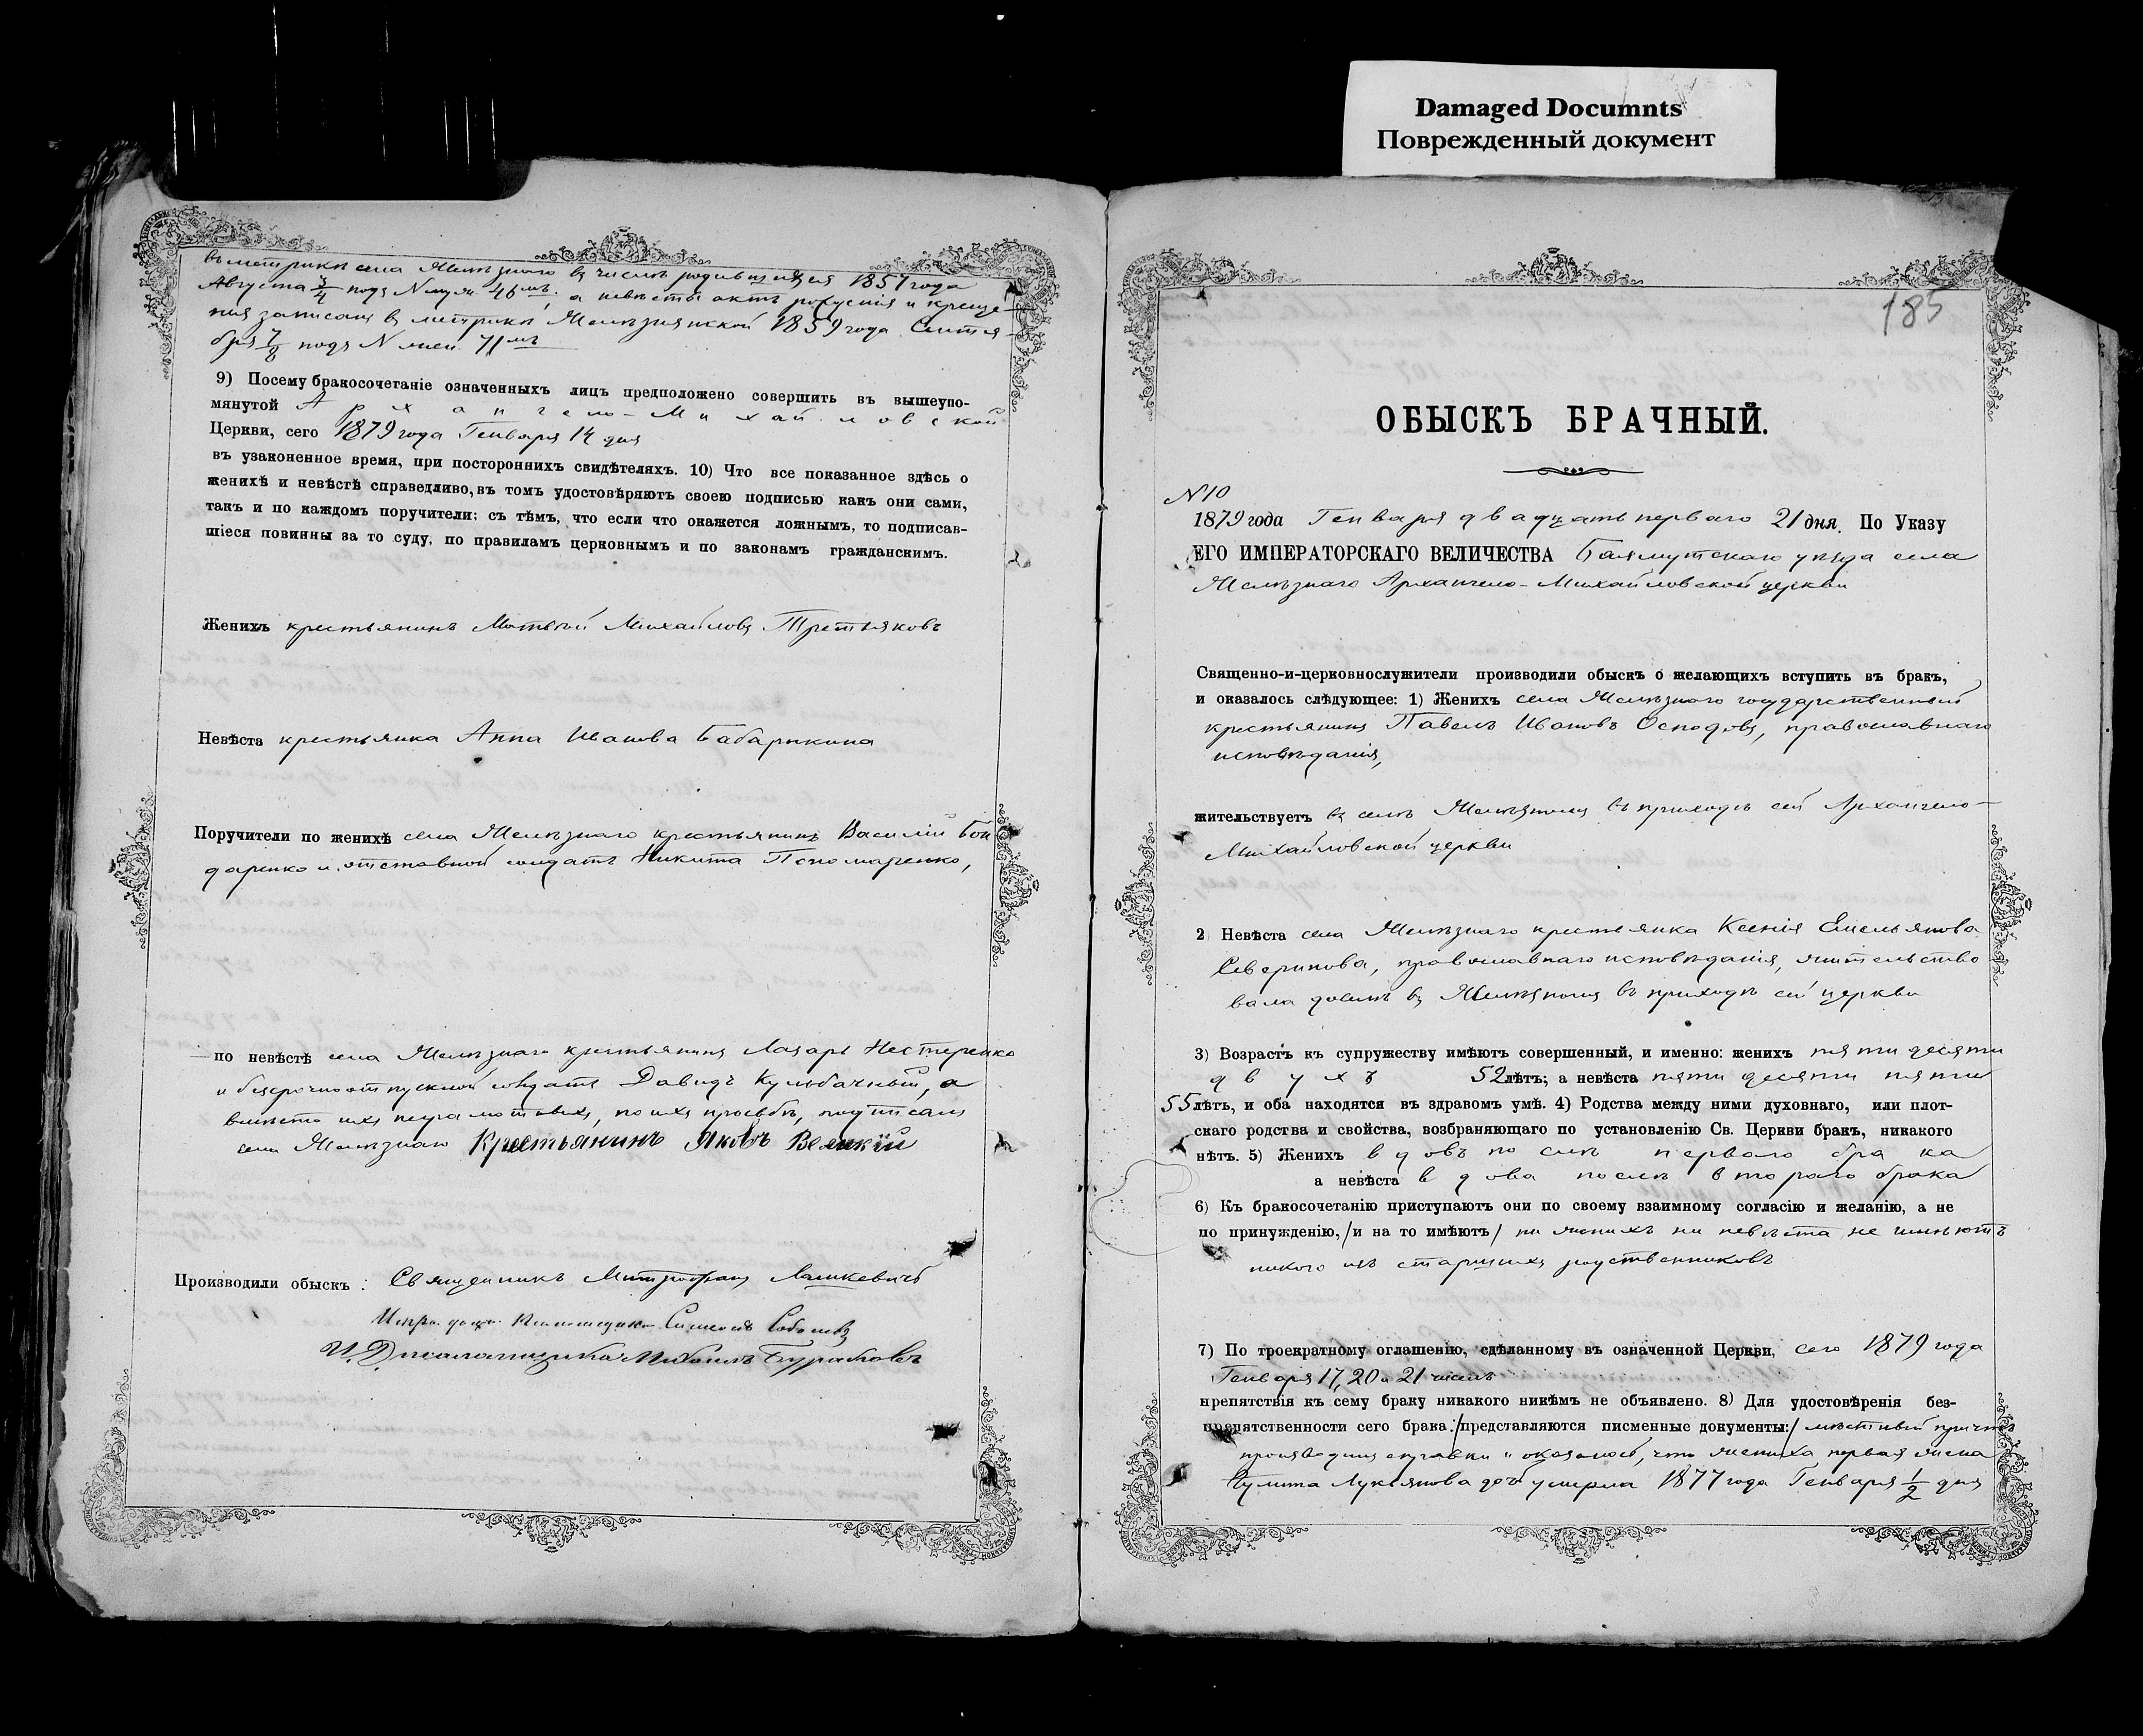 Damaged Documnts
Поврежденный документ
въ метрикѣ села Желѣзнаго въ числѣ родившихся 1857 года
Августа 3/4 подъ № муж. 46мъ. а невѣсты актъ рожденія и креще-
нія записанъ въ метрикѣ Желѣзнянской 1859 года Сентя-
бря 7/8 подъ № жен. 71мъ
9) Посему бракосочетаніе означенныхъ лицъ предположено совершить въ вышеупо-
мянутой Архангело-Михайловской
Церкви, сего 1879 года Генваря 14 дня
въ узаконенное время, при постороннихъ свидѣтеляхъ. 10) Что все показанное здѣсь о
женихѣ и невѣстѣ справедливо, въ томъ удостовѣряютъ своею подписью какъ они сами,
такъ и по каждомъ поручители; съ тѣмъ, что если что окажется ложнымъ, то подписав-
шіеся повинны за то суду, по правиламъ церковнымъ и по законамъ гражданскимъ.
Женихъ крестьянинъ Матвѣй Михайловъ Третьяковъ
Невѣста крестьянка Анна Иванова Бабарыкина
Поручители по женихѣ села Желѣзнаго крестьянинъ Василій Бон
даренко и отставной солдатъ Никита Пономаренко,
по невѣстѣ села Желѣзнаго крестьянинъ Лазарь Нестеренко
и безсрочноотпускной солдатъ Давидъ Кульбачный, а
вмѣсто ихъ неграмотныхъ, по ихъ просьбѣ, подписалъ
села Желѣзнаго Крестьянинъ Яковъ Великій
Производили обыскъ: Священникъ Митрофанъ Лашкевичъ
Симеонъ
И. Д. псаломщика
185
ОБЫСКЪ БРАЧНЫЙ.
№ 10
1879 года Генваря двадцать перваго 21 дня. По Указу
ЕГО ИМПЕРАТОРСКАГО ВЕЛИЧЕСТВА Бахмутскаго уѣзда села
Желѣзнаго Архангело-Михайловской церкви
Священно-и-церковнослужители производили обыскъ о желающихъ вступить въ бракъ,
и оказалось слѣдующее: 1) Женихъ села Желѣзнаго государственный
крестьянинъ Павелъ Ивановъ православнаго
исповѣданія,
жительствуетъ въ селѣ Желѣзномъ въ приходѣ сей Архангело-
Михайловской церкви
2 Невѣста села Желѣзнаго крестьянка Ксенія Емельянова
Северинова, православнаго исповѣданія, жительство
вала доселѣ въ Желѣзномъ въ приходѣ сей церкви
3) Возрастъ къ супружеству имѣютъ совершенный, и именно: женихъ пятидесяти
двухъ 52 лѣтъ; а невѣста пятидесяти пяти
55 лѣтъ, и оба находятся въ здравомъ умѣ. 4) Родства между ними духовнаго, или плот-
скаго родства и свойства, возбраняющаго по установленію Св. Церкви бракъ, никакого
нѣтъ. 5) Женихъ вдовъ послѣ перваго брака
а невѣста вдова послѣ втораго брака
6) Къ бракосочетанію приступаютъ они по своему взаимному согласію и желанію, а не
по принужденію, /и на то имѣютъ/ ни женихъ ни невѣста не имѣютъ
никого изъ старшихъ родственниковъ
7) По троекратному оглашенію, сдѣланному въ означенной Церкви, сего 1879 года
Генваря 17, 20 и 21 числъ
препятствія къ сему браку никакого никѣмъ не объявлено. 8) Для удостовѣренія без-
препятственности сего брака: /представляются писменные документы:/ мѣстный причтъ
производилъ справки и оказалось, что жениха первая жена
Лукьянова дочь умерла 1877 года Генваря 1/2 дня